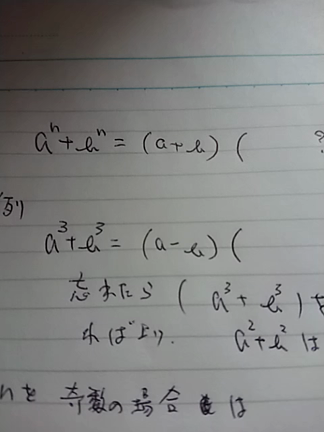 aⁿ+bⁿ = (a+b) (
例
a³+b³ = (a-b) (
忘れたら ( a³+b³ ) を
ればよい. a²+b² は
nを 奇数の場合 は